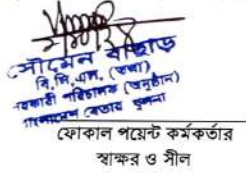 সৌমেন বাছাড়
বি.সি.এস. (তথ্য)
সহকারী পরিচালক (অনুষ্ঠান)
বাংলাদেশ বেতার খুলনা
ফোকাল পয়েন্ট কর্মকর্তার
স্বাক্ষর ও সীল